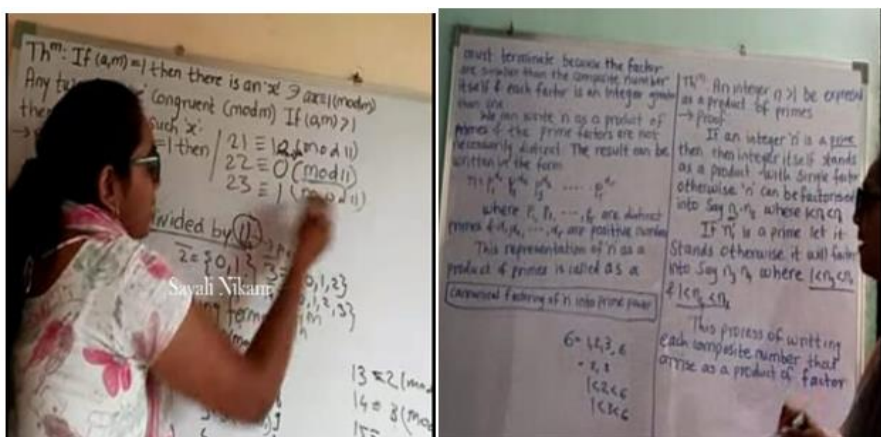 Thᵐ: If (a,m)=1 then there is an 'x' ∋ ax≡1(modm)
Any two congruent (modm) If (a,m)>1
then such 'x'.
=1 then
21 ≡ (mod11)
22 ≡ 0 (mod11)
23 ≡ 1 (mod11)
divided by 11
2 = {0,1}
3 = 0,1,2}
0,1,2,3}
Sayali Nikam
13 ≡ 2 (mo
14 ≡ 3 (mo
15
must terminate because the factor
are smaller than the composite number
itself & each factor is an integer greater
than one
We can write n as a product of
primes & the prime factors are not
necessarily distinct. The result can be
written in the form
where P₁, P₂, ..., Pᵣ are distinct
primes & α₁, α₂, ..., αᵣ are positive number
This representation of 'n' as a
product of primes is called as a
canonical factoring of 'n' into prime power
6= 1,2,3,6
= 2,3
1<2<6
1<3<6
Thᵐ: An integer n >1 be expressed
as a product of primes
→ Proof:
If an integer 'n' is a prime
then then integer itself stands
as a product with single factor
otherwise 'n' can be factorised
into say n₁ n₂ where 1<n₁<n
If n₁ is a prime let it
stands otherwise it will factor
into Say n₃ n₄ where 1<n₃<n₁
& 1<n₄<n₁
This process of writting
each composite number that
arise as a product of factor